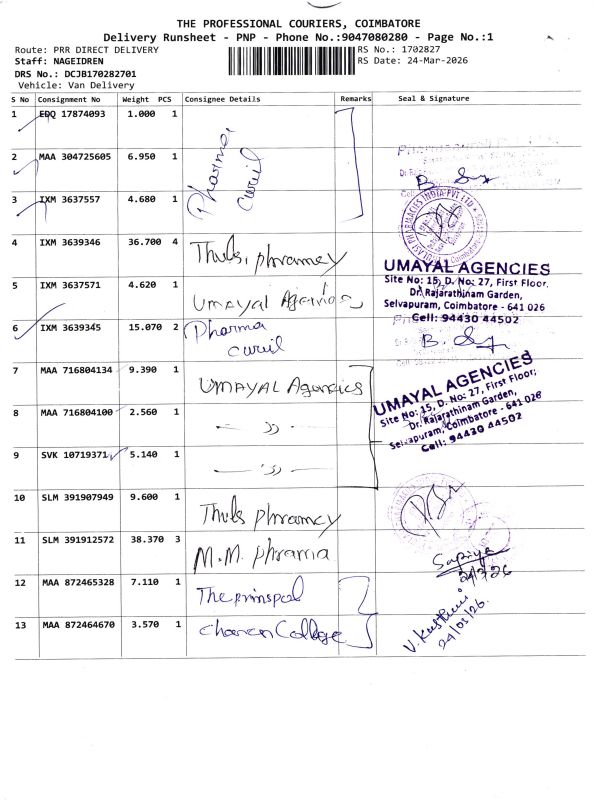 THE PROFESSIONAL COURIERS, COIMBATORE
Delivery Runsheet - PNP - Phone No.:9047080280 - Page No.:1
Route: PRR DIRECT DELIVERY
RS No.: 1702827
Staff: NAGEIDREN
RS Date: 24-Mar-2026
DRS No.: DCJB170282701
Vehicle: Van Delivery
S No Consignment No Weight PCS Consignee Details Remarks Seal & Signature
1 EDQ 17874093 1.000 1
2 MAA 304725605 6.950 1 Pharma
3 IXM 3637557 4.680 1
4 IXM 3639346 36.700 4
UMAYAL AGENCIES
Site No: 15, D. No: 27, First Floor.
Dr. Rajarathinam Garden,
Selvapuram, Coimbatore - 641 026
Cell: 94430 44502
5 IXM 3637571 4.620 1 UMAYal Agencies
6 IXM 3639345 15.070 2 Pharma
7 MAA 716804134 9.390 1 UMAYAL Agencies
UMAYAL AGENCIES
Site No: 15, D. No: 27, First Floor,
Dr. Rajarathinam Garden,
Selvapuram, Coimbatore - 641 026
Cell: 94430 44502
8 MAA 716804100 2.560 1
9 SVK 10719371 5.140 1
10 SLM 391907949 9.600 1
11 SLM 391912572 38.370 3 M.M. phrama
12 MAA 872465328 7.110 1 The prinspal
13 MAA 872464670 3.570 1 College
24/03/26.